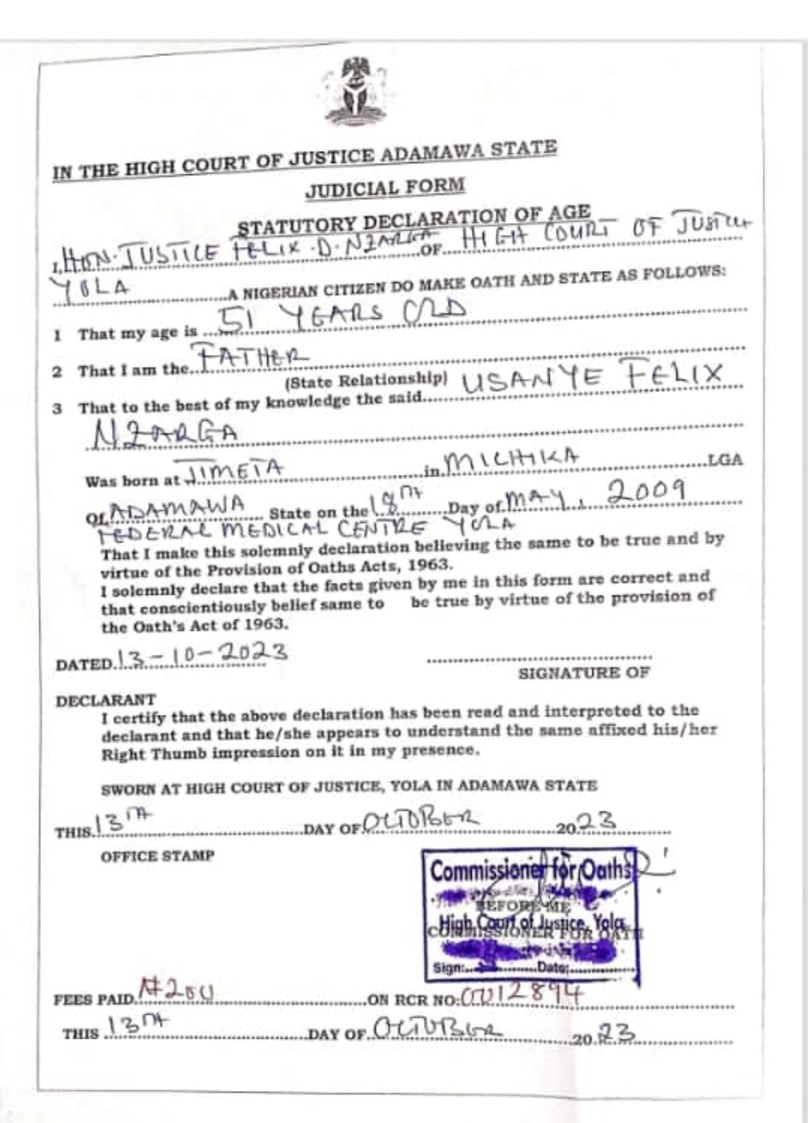 IN THE HIGH COURT OF JUSTICE ADAMAWA STATE
JUDICIAL FORM
STATUTORY DECLARATION OF AGE
I, HON. JUSTICE FELIX D. NZARGA OF HIGH COURT OF JUSTICE
YOLA A NIGERIAN CITIZEN DO MAKE OATH AND STATE AS FOLLOWS:
1 That my age is 51 YEARS OLD
2 That I am the FATHER
(State Relationship)
3 That to the best of my knowledge the said USANYE FELIX
NZARGA
Was born at JIMETA in MICHIKA LGA
Of ADAMAWA State on the 18TH Day of MAY, 2009
FEDERAL MEDICAL CENTRE YOLA
That I make this solemnly declaration believing the same to be true and by
virtue of the Provision of Oaths Acts, 1963.
I solemnly declare that the facts given by me in this form are correct and
that conscientiously belief same to be true by virtue of the provision of
the Oath's Act of 1963.
DATED 13-10-2023
SIGNATURE OF
DECLARANT
I certify that the above declaration has been read and interpreted to the
declarant and that he/she appears to understand the same affixed his/her
Right Thumb impression on it in my presence.
SWORN AT HIGH COURT OF JUSTICE, YOLA IN ADAMAWA STATE
THIS 13TH DAY OF OCTOBER 2023
OFFICE STAMP
Commissioner for Oaths
BEFORE ME
High Court of Justice, Yola
COMMISSIONER FOR OATH
Sign: Date:
FEES PAID ₦200 ON RCR NO: 0012894
THIS 13TH DAY OF OCTOBER 2023